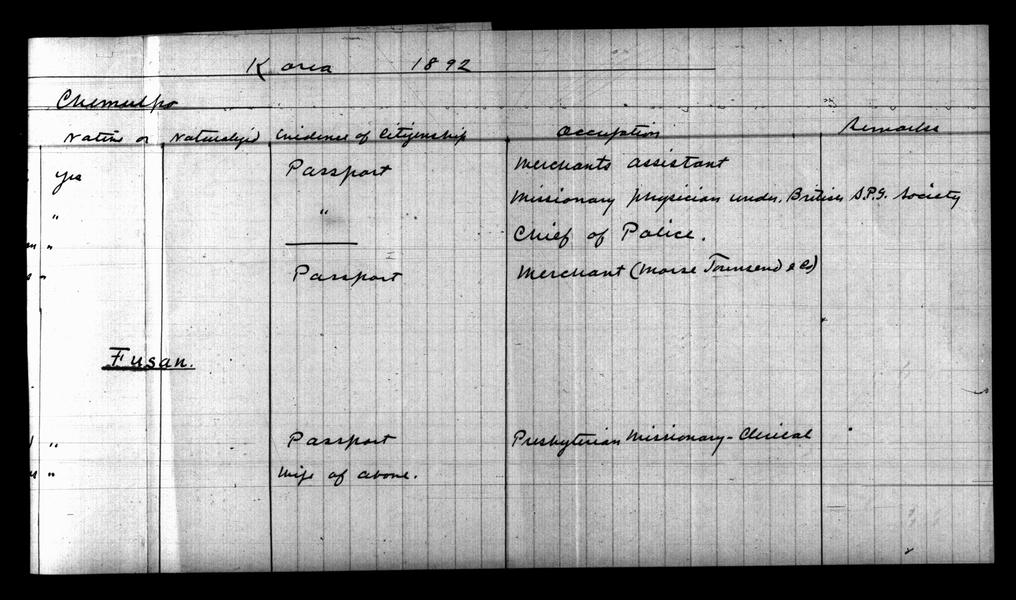 Korea 1892
Chemulpo
Native or Naturalized Evidence of Citizenship Occupation Remarks
yes Passport Merchants assistant
" " Missionary physician under British S.P.G. Society
" Chief of Police.
" Passport Merchant (Morse Townsend & Co)
Fusan.
" Passport Presbyterian Missionary - Clerical
" Wife of above.